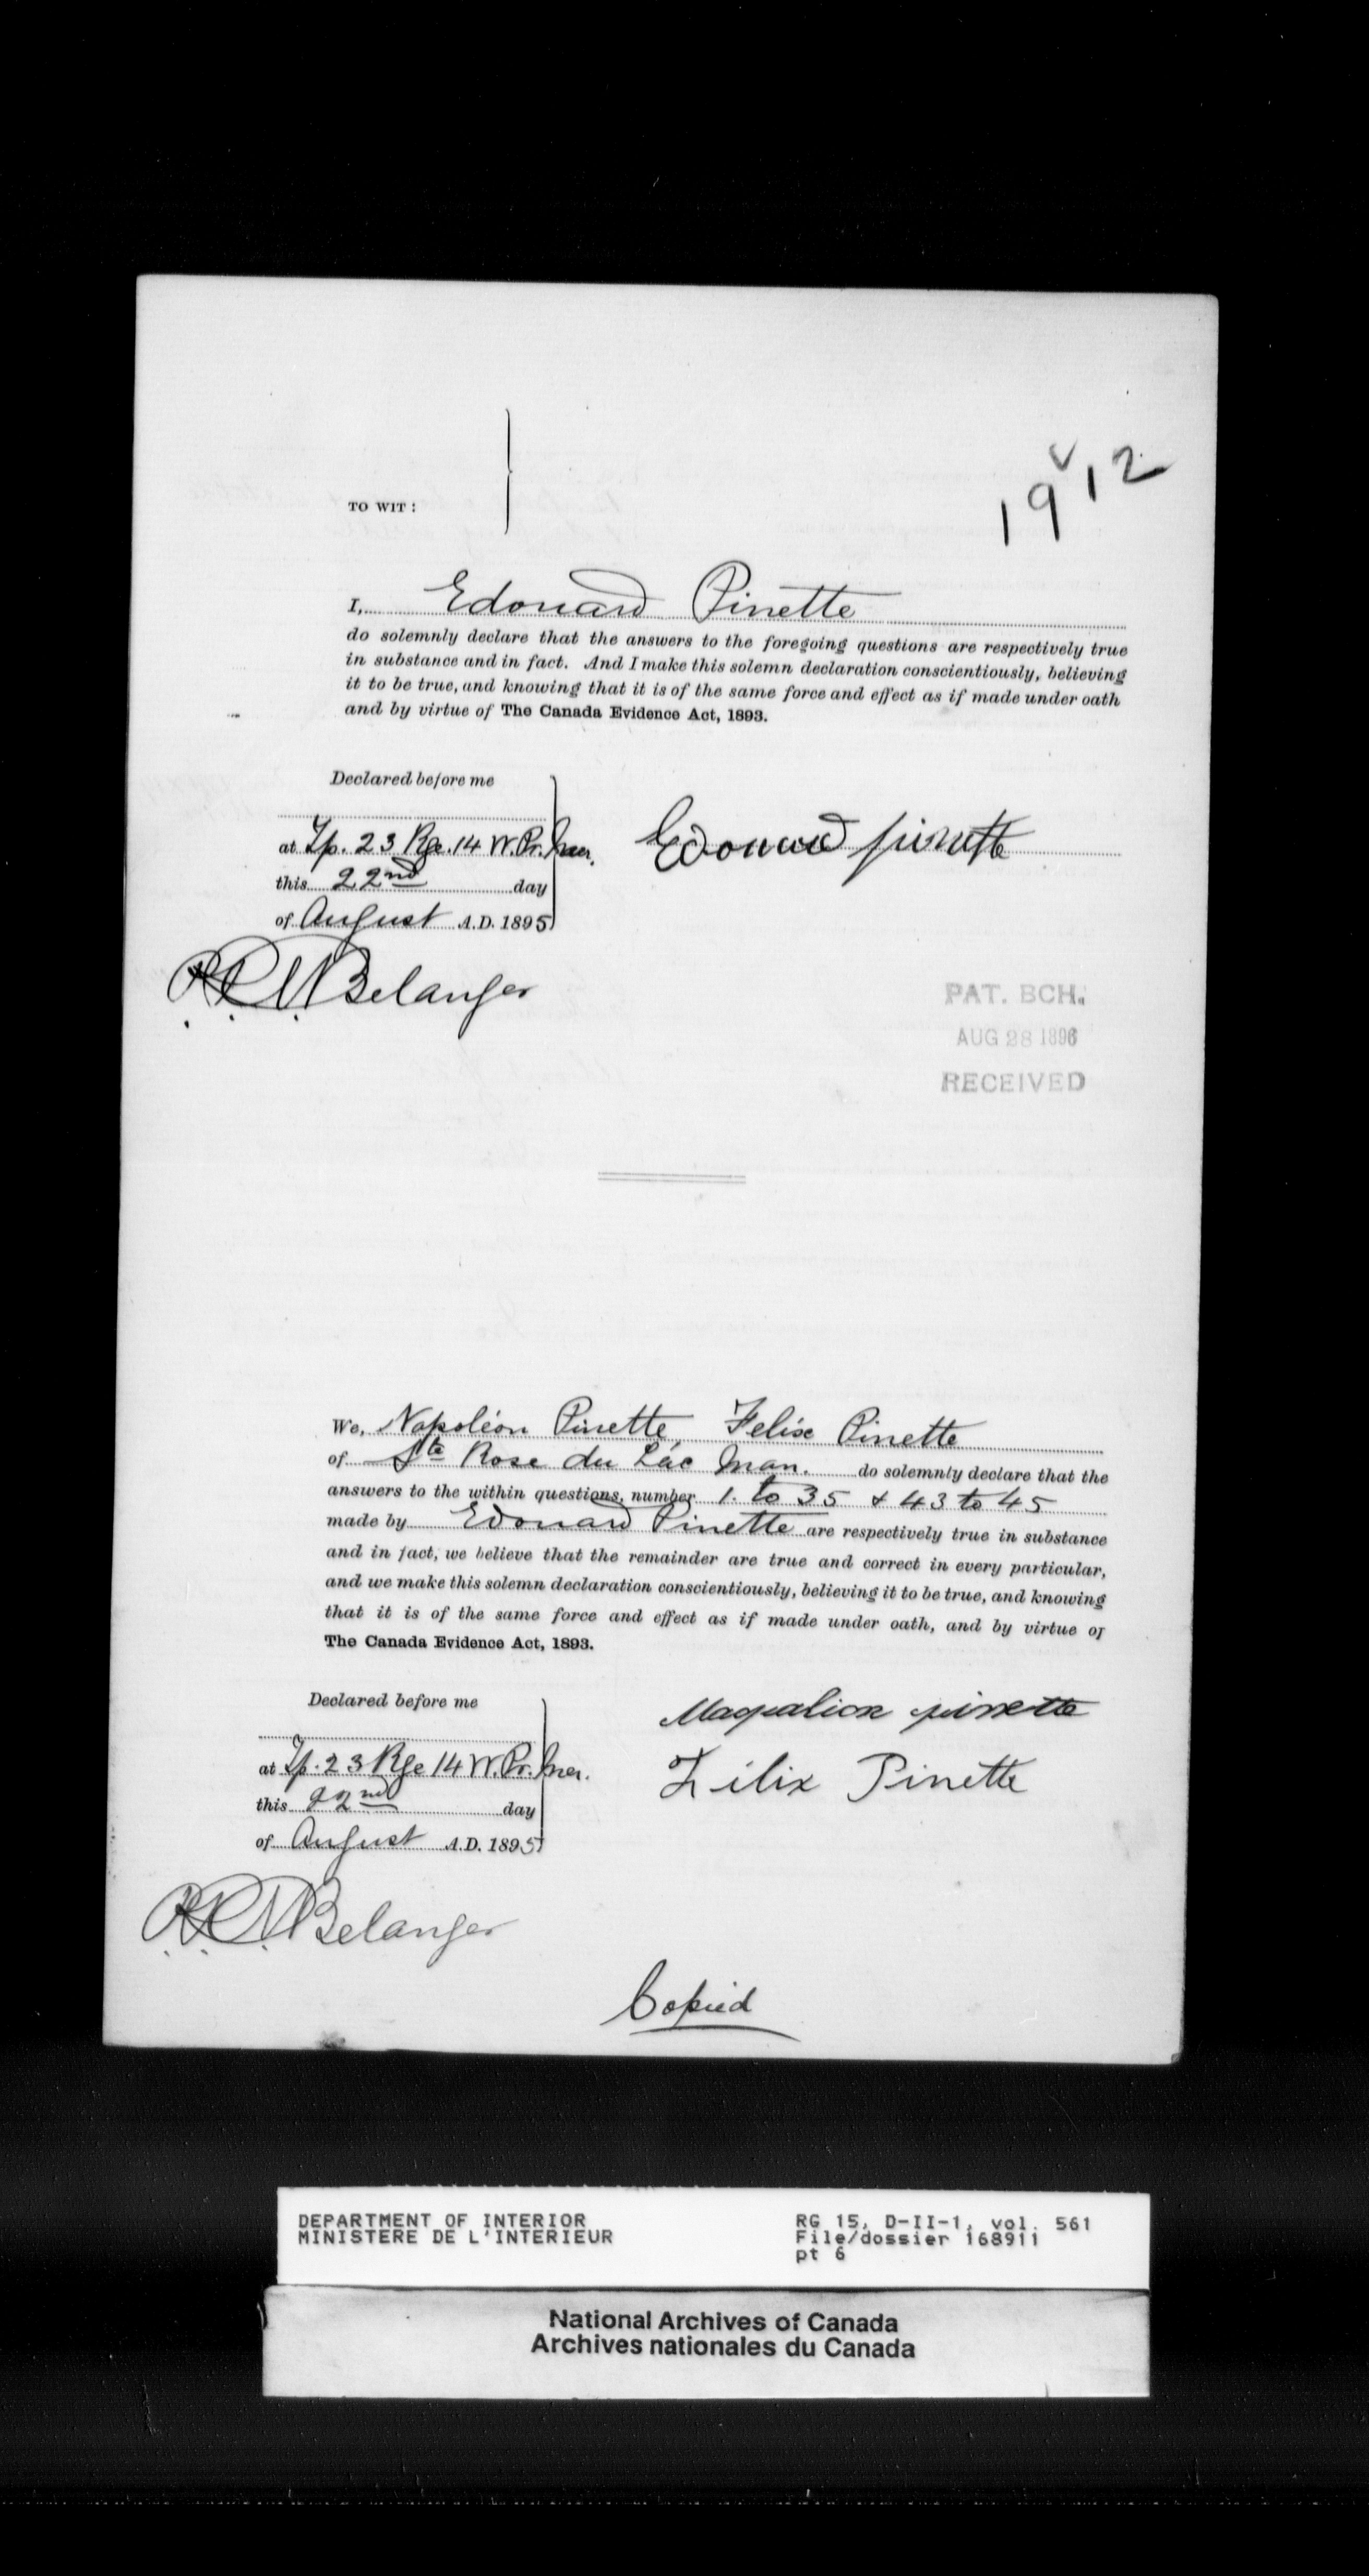 1912
TO WIT:
I, Edouard Pinette
do solemnly declare that the answers to the foregoing questions are respectively true
in substance and in fact. And I make this solemn declaration conscientiously, believing
it to be true, and knowing that it is of the same force and effect as if made under oath
and by virtue of The Canada Evidence Act, 1893.
Declared before me
at Tp. 23 Rge. 14 W. Pr. Mer.
this 22nd day
of August A.D. 1895
Edouard pinette
Belanger
PAT. BCH.
AUG 28 1896
RECEIVED
We, Napoléon Pinette, Felix Pinette
of Ste Rose du Lac Man. do solemnly declare that the
answers to the within questions, number 1. to 35 & 43 to 45
made by Edouard Pinette are respectively true in substance
and in fact, we believe that the remainder are true and correct in every particular,
and we make this solemn declaration conscientiously, believing it to be true, and knowing
that it is of the same force and effect as if made under oath, and by virtue of
The Canada Evidence Act, 1893.
Declared before me
at Tp. 23 Rge 14 W. Pr. Mer.
this 22nd day
of August A.D. 1895
pinette
Filix Pinette
Belanger
Copied
DEPARTMENT OF INTERIOR
MINISTERE DE L'INTERIEUR
RG 15, D-II-1, vol. 561
File/dossier 168911
pt 6
National Archives of Canada
Archives nationales du Canada